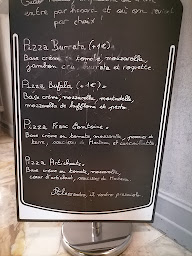 entre par hasard et où on revient
par choix !
Pizza Burrata (+1€)
Base crème ou tomate, mozzarella,
jambon cru, burrata et roquette
Pizza Bufala (+1€)
Base crème, mozzarella, mortadella,
mozzarella de buffonne et pesto
Pizza Franc Comtoise
Base crème ou tomate, mozzarella, pommes de
terre, saucisse de Morteau et cancoillotte
Pizza Artichauts
Base crème ou tomate, mozzarella,
cœur d'artichaut,